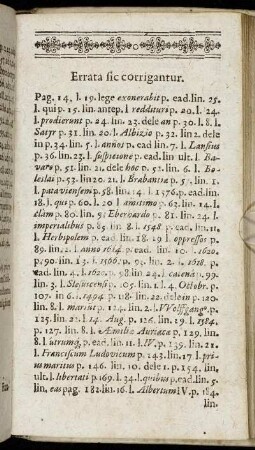 Errata sic corrigantur.
Pag. 14. l. 19. lege exonerabit p. ead. lin. 25.
l. qui p. 15. lin. antep. l redditurus p. 20. l. 24.
l. prodierunt p. 24. lin. 23. dele an p. 30. l. 8. l.
Satyr p. 31. lin. 20. l. Albizio p. 32. lin. 2. dele
in p. 34. lin. 5. l. annos p. ead lin. 7. l. Lansius
p. 36. lin. 23. l. suspicione p. ead. lin ult. l. Ba-
varo p. 51. lin. 21. dele hoc p. 52. lin. 6. l. Bo-
leslai p. 53. lin. 20. 21. l. Brabantia p. 57. lin. 1.
l. pataviensem p. 58. lin. 14. l. 1576. p. ead. lin.
18. l. quo p. 60. l. 20 amitimo p. 62. lin. 14. l.
clàm p. 80. lin. 9; Eberhardo p. 81. lin. 24. l.
imperialibus p. 85. lin. 8. l. 1548. p. ead. lin. 11.
l. Herbipolem p. ead. lin. 18. 19. l. oppressos p.
89. lin. 2. l. anno 1614. p. ead. lin. 10. l. 1620.
p. 90. lin. 13. l. 1566. p. 93. lin. 2. l. 1618. p.
ead. lin. 4. l. 1620. p. 98. lin. 24. l. catenâ p. 99.
lin. 3. l. Slesvicensis p. 105. lin. 1. l. 4. Octobr. p.
107. in 6. l. 1494. p. 118. lin. 22. dele in p. 120.
lin. 8. l. marito p. 124. lin. 2. l. VVolffgango p.
125. lin. 21. l. 14. Aug. p. 126. lin. 19. l. 1584.
p. 127. lin. 8. l. Æmiliæ Auriacæ p. 129. lin.
8. l. utrumq; p. ead. lin. 11. l. IV. p. 139. lin. 21.
l. Franciscum Ludovicum p. 143. lin. 17 l. pri-
us maritus p. 146. lin. 10. dele 1. p. 154. lin.
ult. l. libertati p. 169. l. 34. l. quibus p. ead. lin. 5.
lin, eas pag. 182. lin. 16. l. Albertum IV. p. 184.
lin.